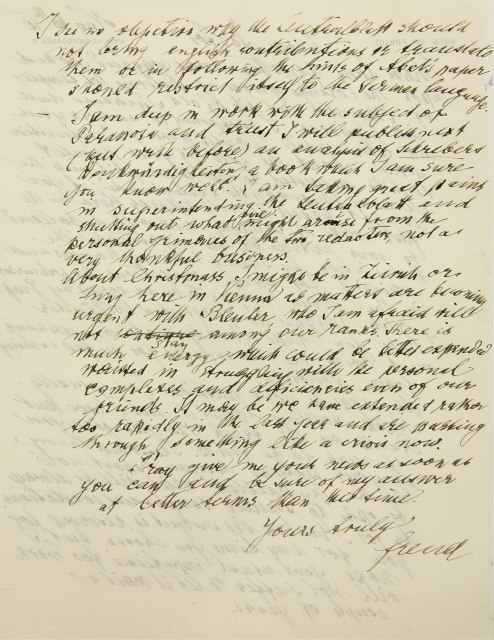 I see no objection why the Zentralblatt should
not bring english contributions or translate
them or in following the hints of Abel's paper
should restrict itself to the German language.
— I am deep in work with the subject of
Paranoia and trust, I will publish next
(but write before) an analysis of Schrebers
Denkwürdigkeiten, a book which I am sure
you know well. I am taking great pains
in superintending the Zentralblatt and
shutting out what might arise from the
personal of the two redactors, not a
very thankful business.
About Christmas I might be in Zürich or
Jung here in Vienna as matters are becoming
urgent with Bleuler who I am afraid will
not stay among our ranks. There is
much energy, which could be better expended
wasted in struggling with the personal
complexes and deficiencies even of our
friends. It may be we have extended rather
too rapidly in the last year and are passing
through something like a crisis now.
Pray give me your news as soon as
you can and be sure of my answer
at better terms than this time.
Yours truly
Freud